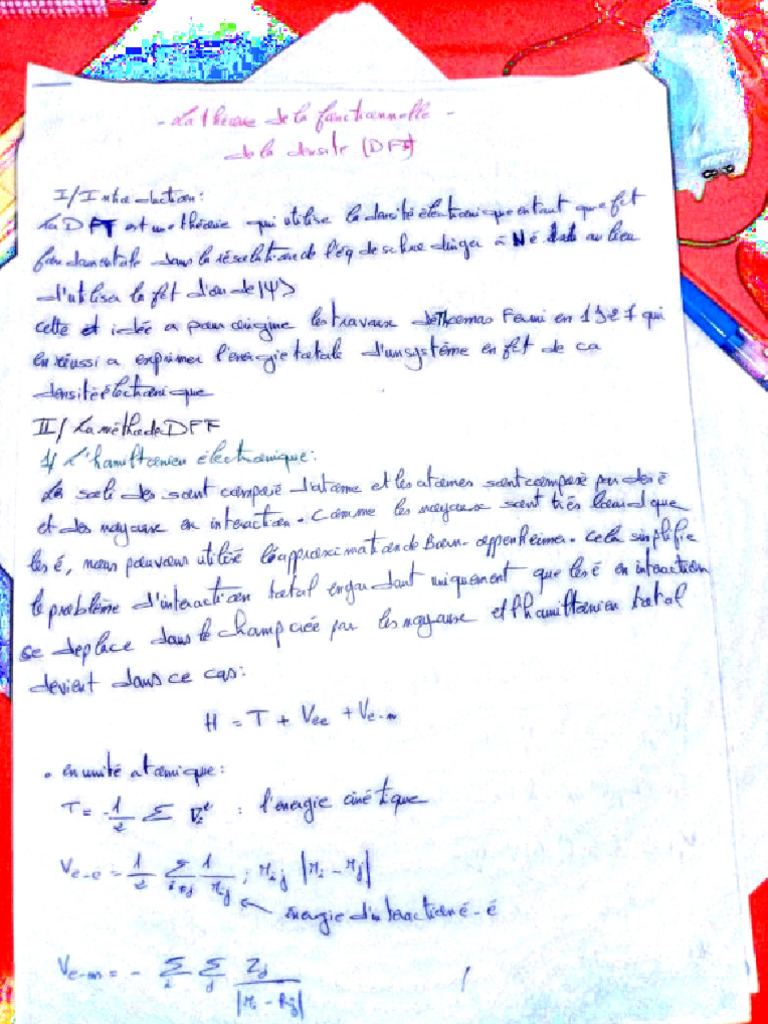 - La théorie de la fonctionnelle -
de la densité (DFT)
I/ Introduction:
La DFT est une théorie qui utilise la densité électronique en tant que fct
fondamentale dans la résolution de l'éq de schrodinger à N é au lieu
d'utiliser la fct d'onde |Ψ>
cette et idée a pour origine les travaux de Thomas Fermi en 1927 qui
en réussi a exprimer l'énergie totale d'un système en fct de ca
densité électronique
II/ La méthode DFT
1/ L'hamiltonien électronique:
Les solides sont composé d'atome et les atomes sont composé par des é
et des noyaux en interaction. Comme les noyaux sont très lourd que
les é, nous pouvons utilisé l'approximation de Born-oppenheimer. Cela simplifie
le problème d'interaction total en gardant uniquement que les é en interaction
se deplace dans le champ créé par les noyaux et l'hamiltonien total
devient dans ce cas:
H = T + Vee + Ve-n
• en unité atomique:
T = -1/2 Σ ∇i² : l'énergie cinétique
Ve-e = 1/2 Σ i≠j 1/rij ; rij |ri - rj|
énergie d'interaction é-é
Ve-n = - Σi Σj Zj/|ri - Rj|